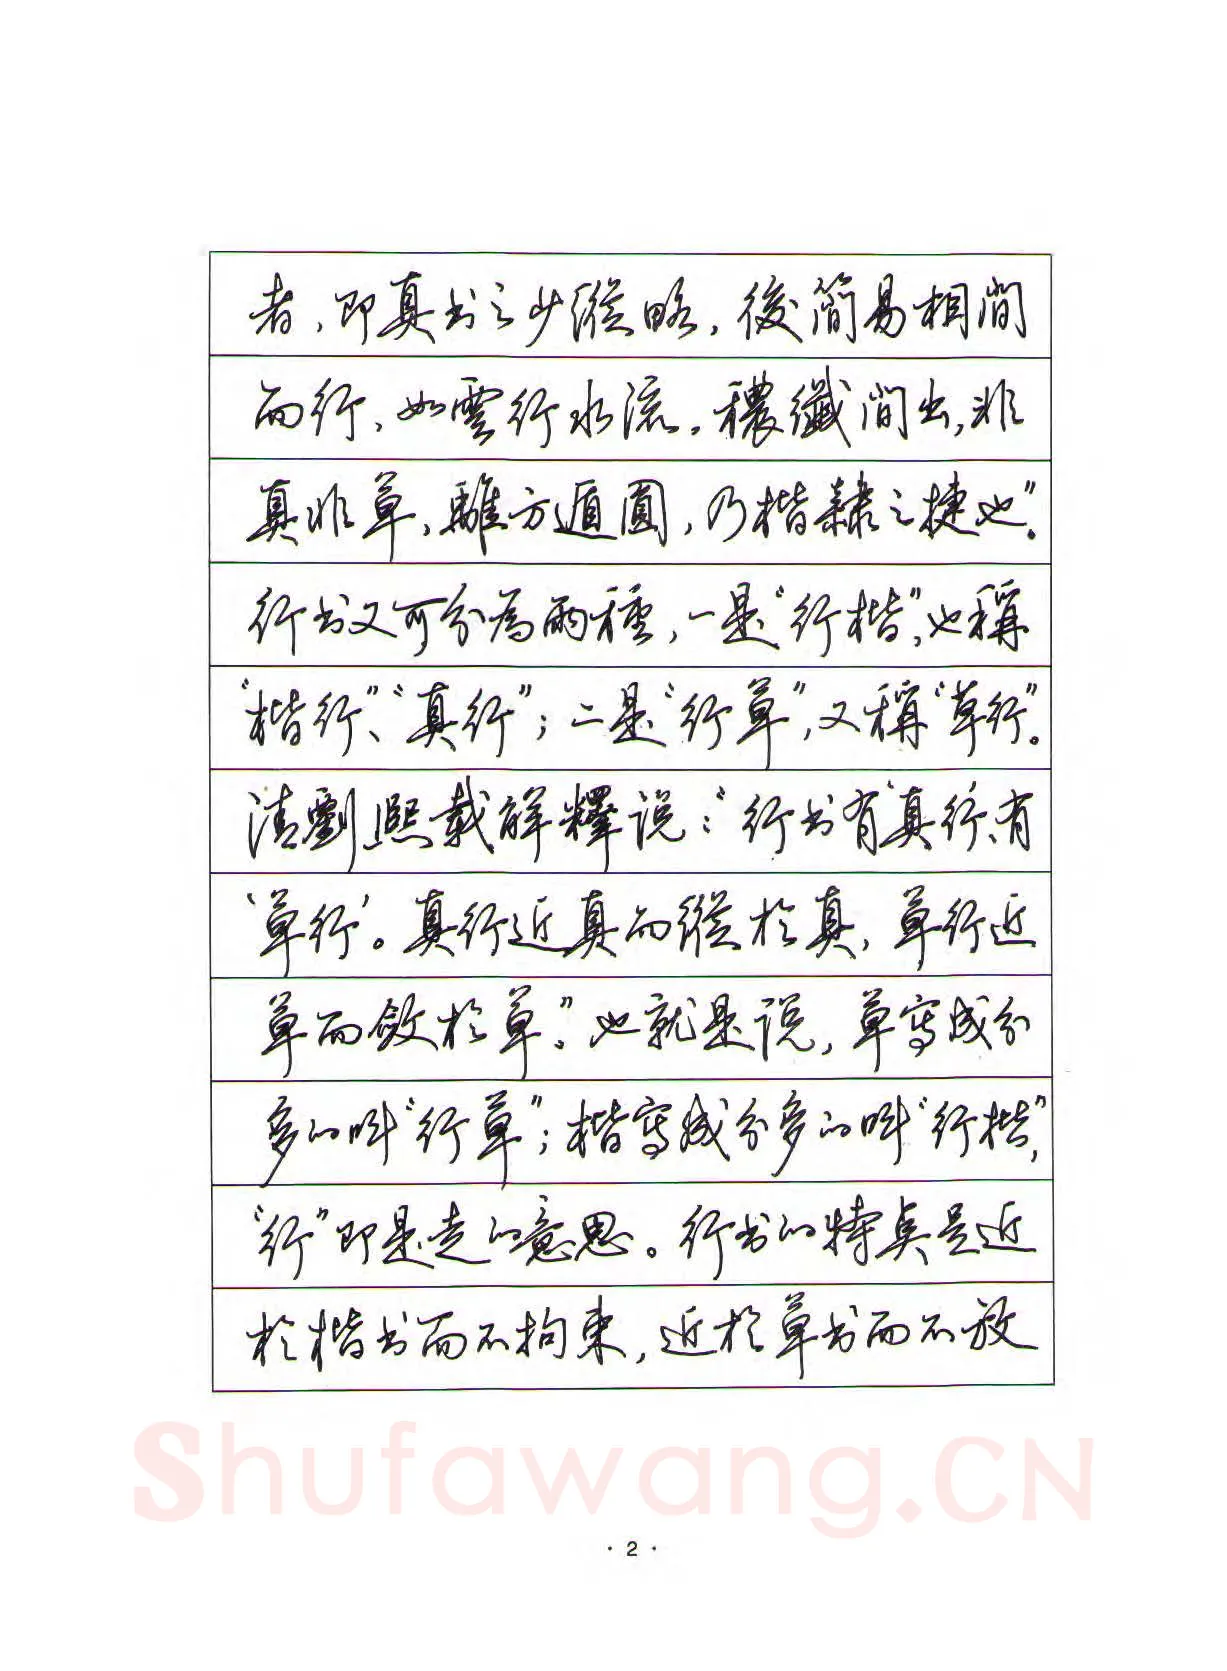 者，即真书之少縱略，後簡易相間
而行，如雲行水流，穠纖間出，非
真非草，離方遁圓，乃楷隸之捷也”。
行书又可分為兩種，一是“行楷”，也稱
“楷行”、“真行”；二是“行草”，又稱“草行”。
清劉熙載解釋说：“行书有‘真行’、有
‘草行’。真行近真而縱於真，草行近
草而斂於草。”也就是说，草寫成分
多的叫“行草”；楷寫成分多的叫“行楷”，
“行”即是走的意思。行书的特点是近
於楷书而不拘束，近於草书而不放
Shufawang.CN
· 2 ·